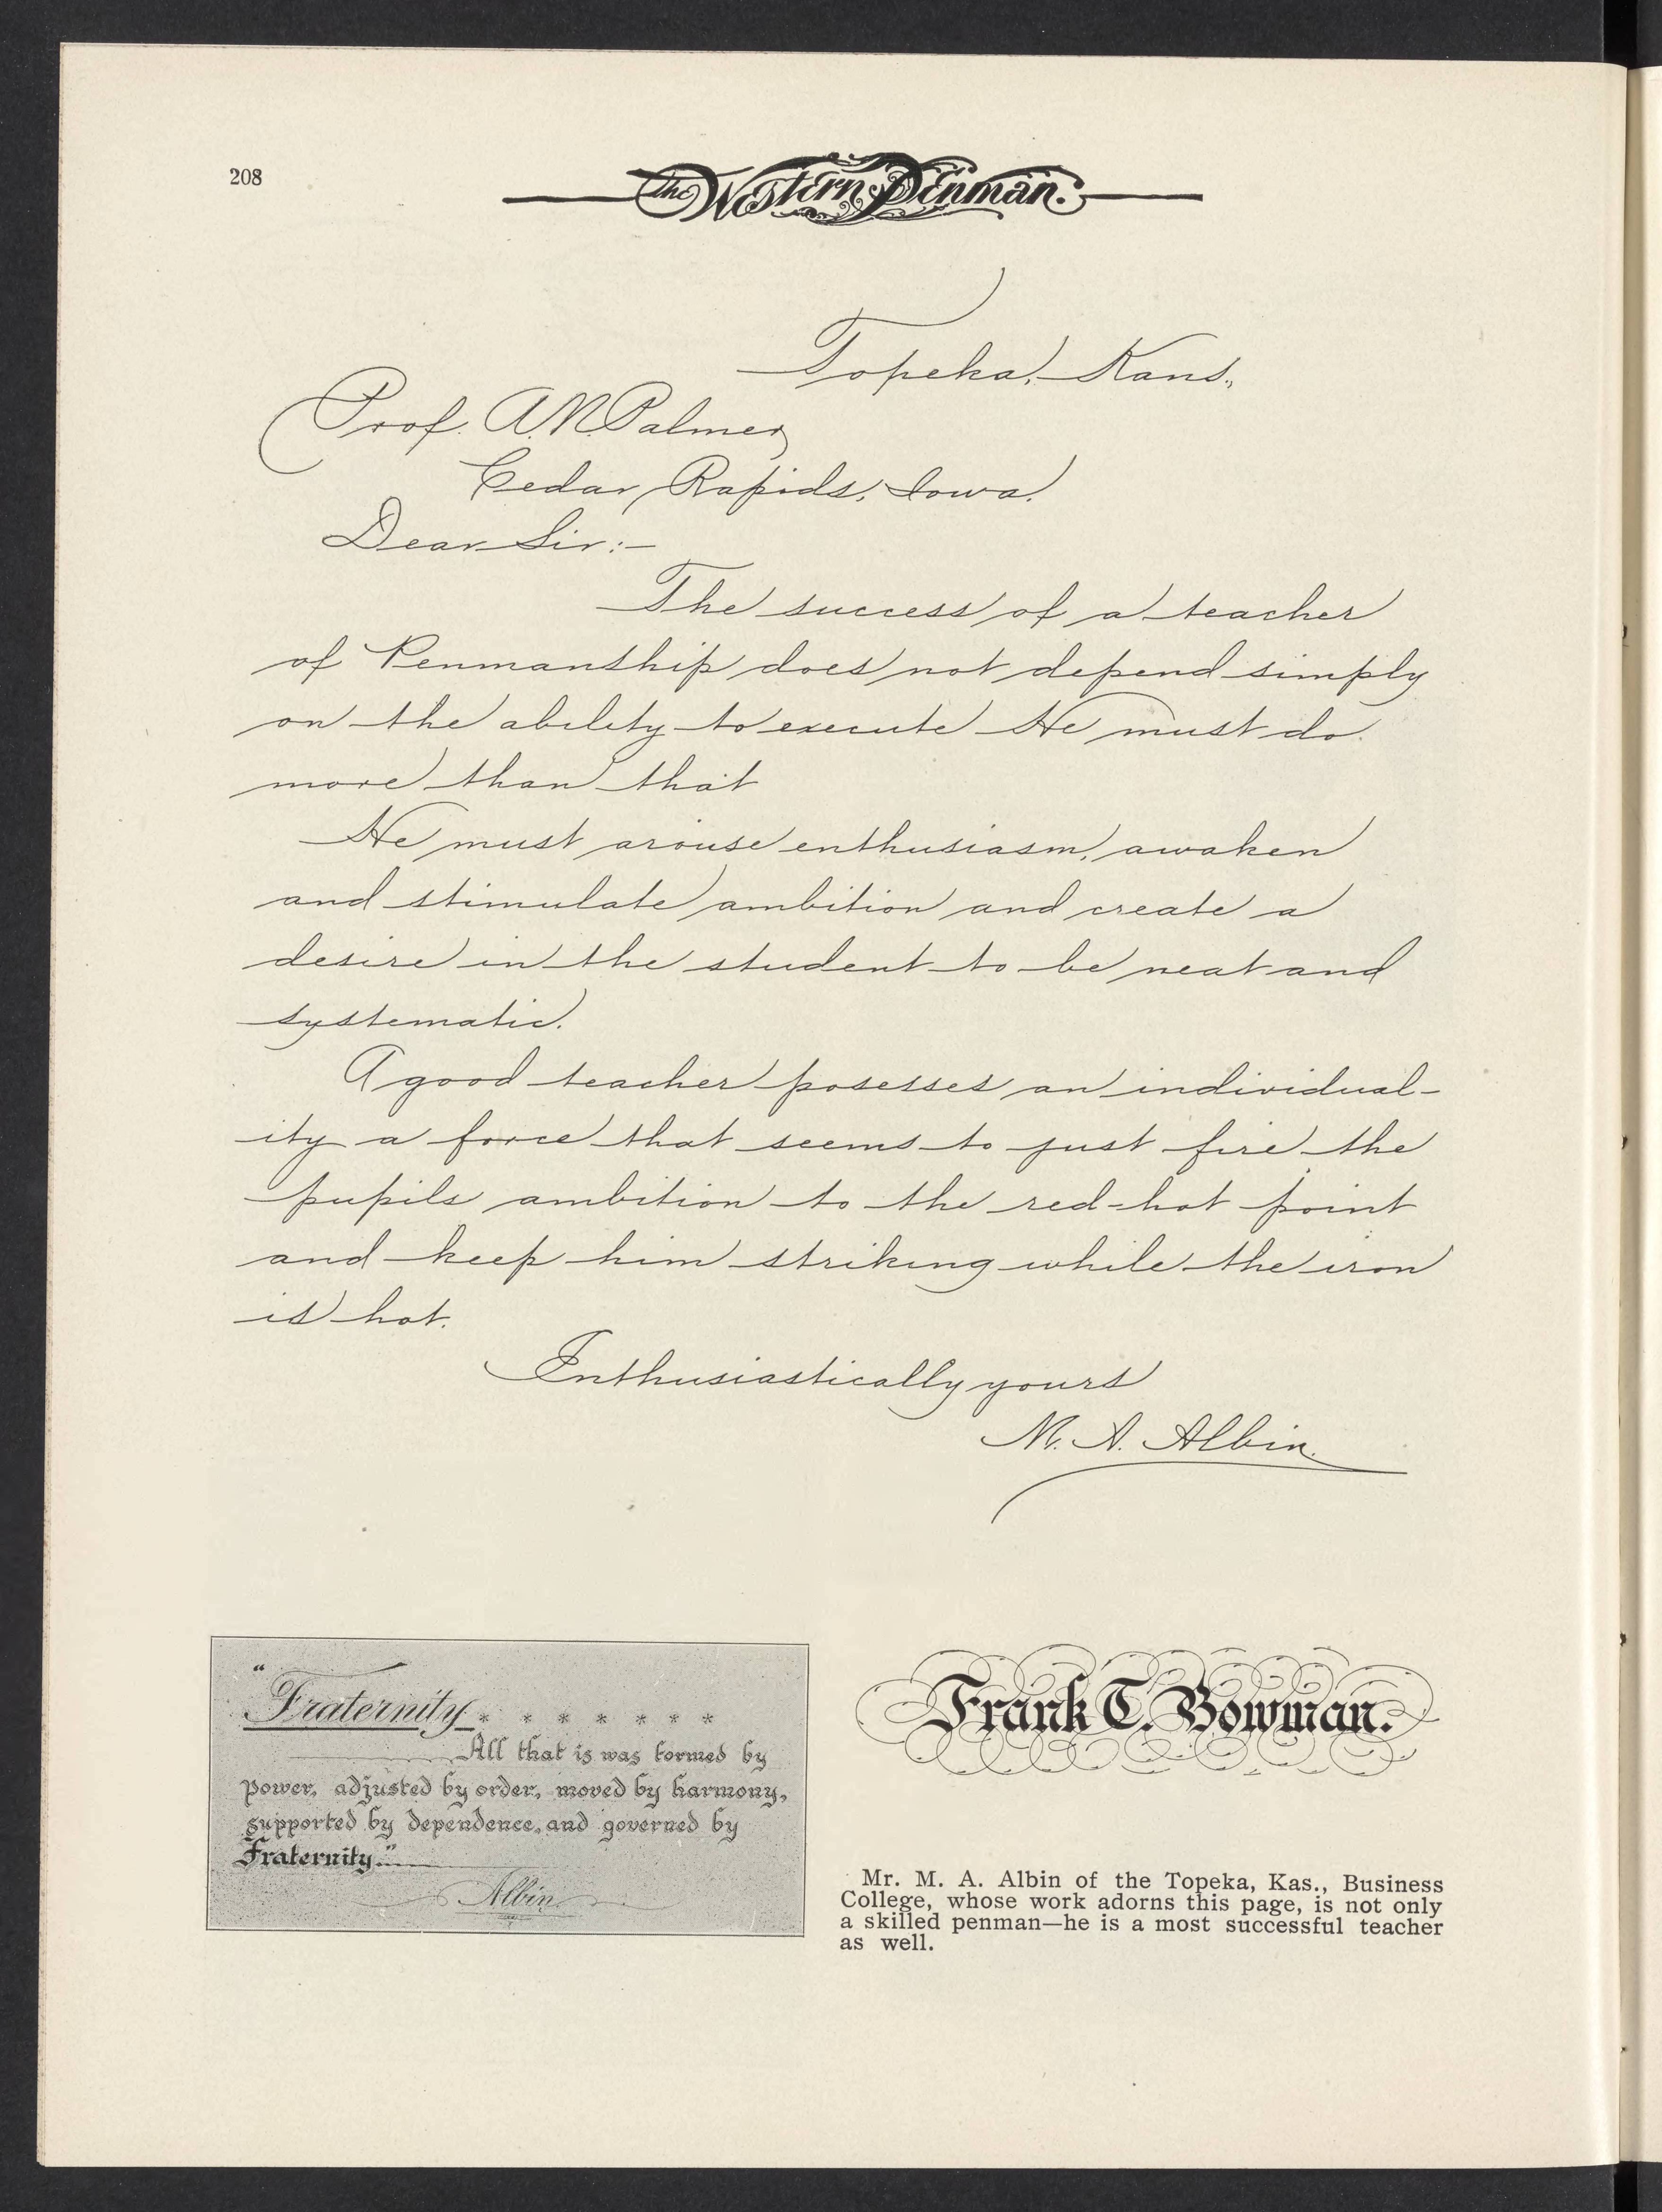 208
The Western Penman.
Topeka, Kans.,
Prof. A. N. Palmer
Cedar Rapids, Iowa.
Dear Sir:-
The success of a teacher
of Penmanship does not depend simply
on the ability to execute He must do
more than that
He must arouse enthusiasm, awaken
and stimulate ambition and create a
desire in the student to be neat and
systematic.
A good teacher posesses an individual-
ity a force that seems to just fire the
pupils ambition to the red-hot point
and keep him striking while the iron
is hot.
Enthusiastically yours
M. A. Albin.
"Fraternity * * * * * * *
All that is was formed by
power, adjusted by order, moved by harmony,
supported by dependence, and governed by
Fraternity."
Albin
Frank T. Bowman.
Mr. M. A. Albin of the Topeka, Kas., Business
College, whose work adorns this page, is not only
a skilled penman—he is a most successful teacher
as well.